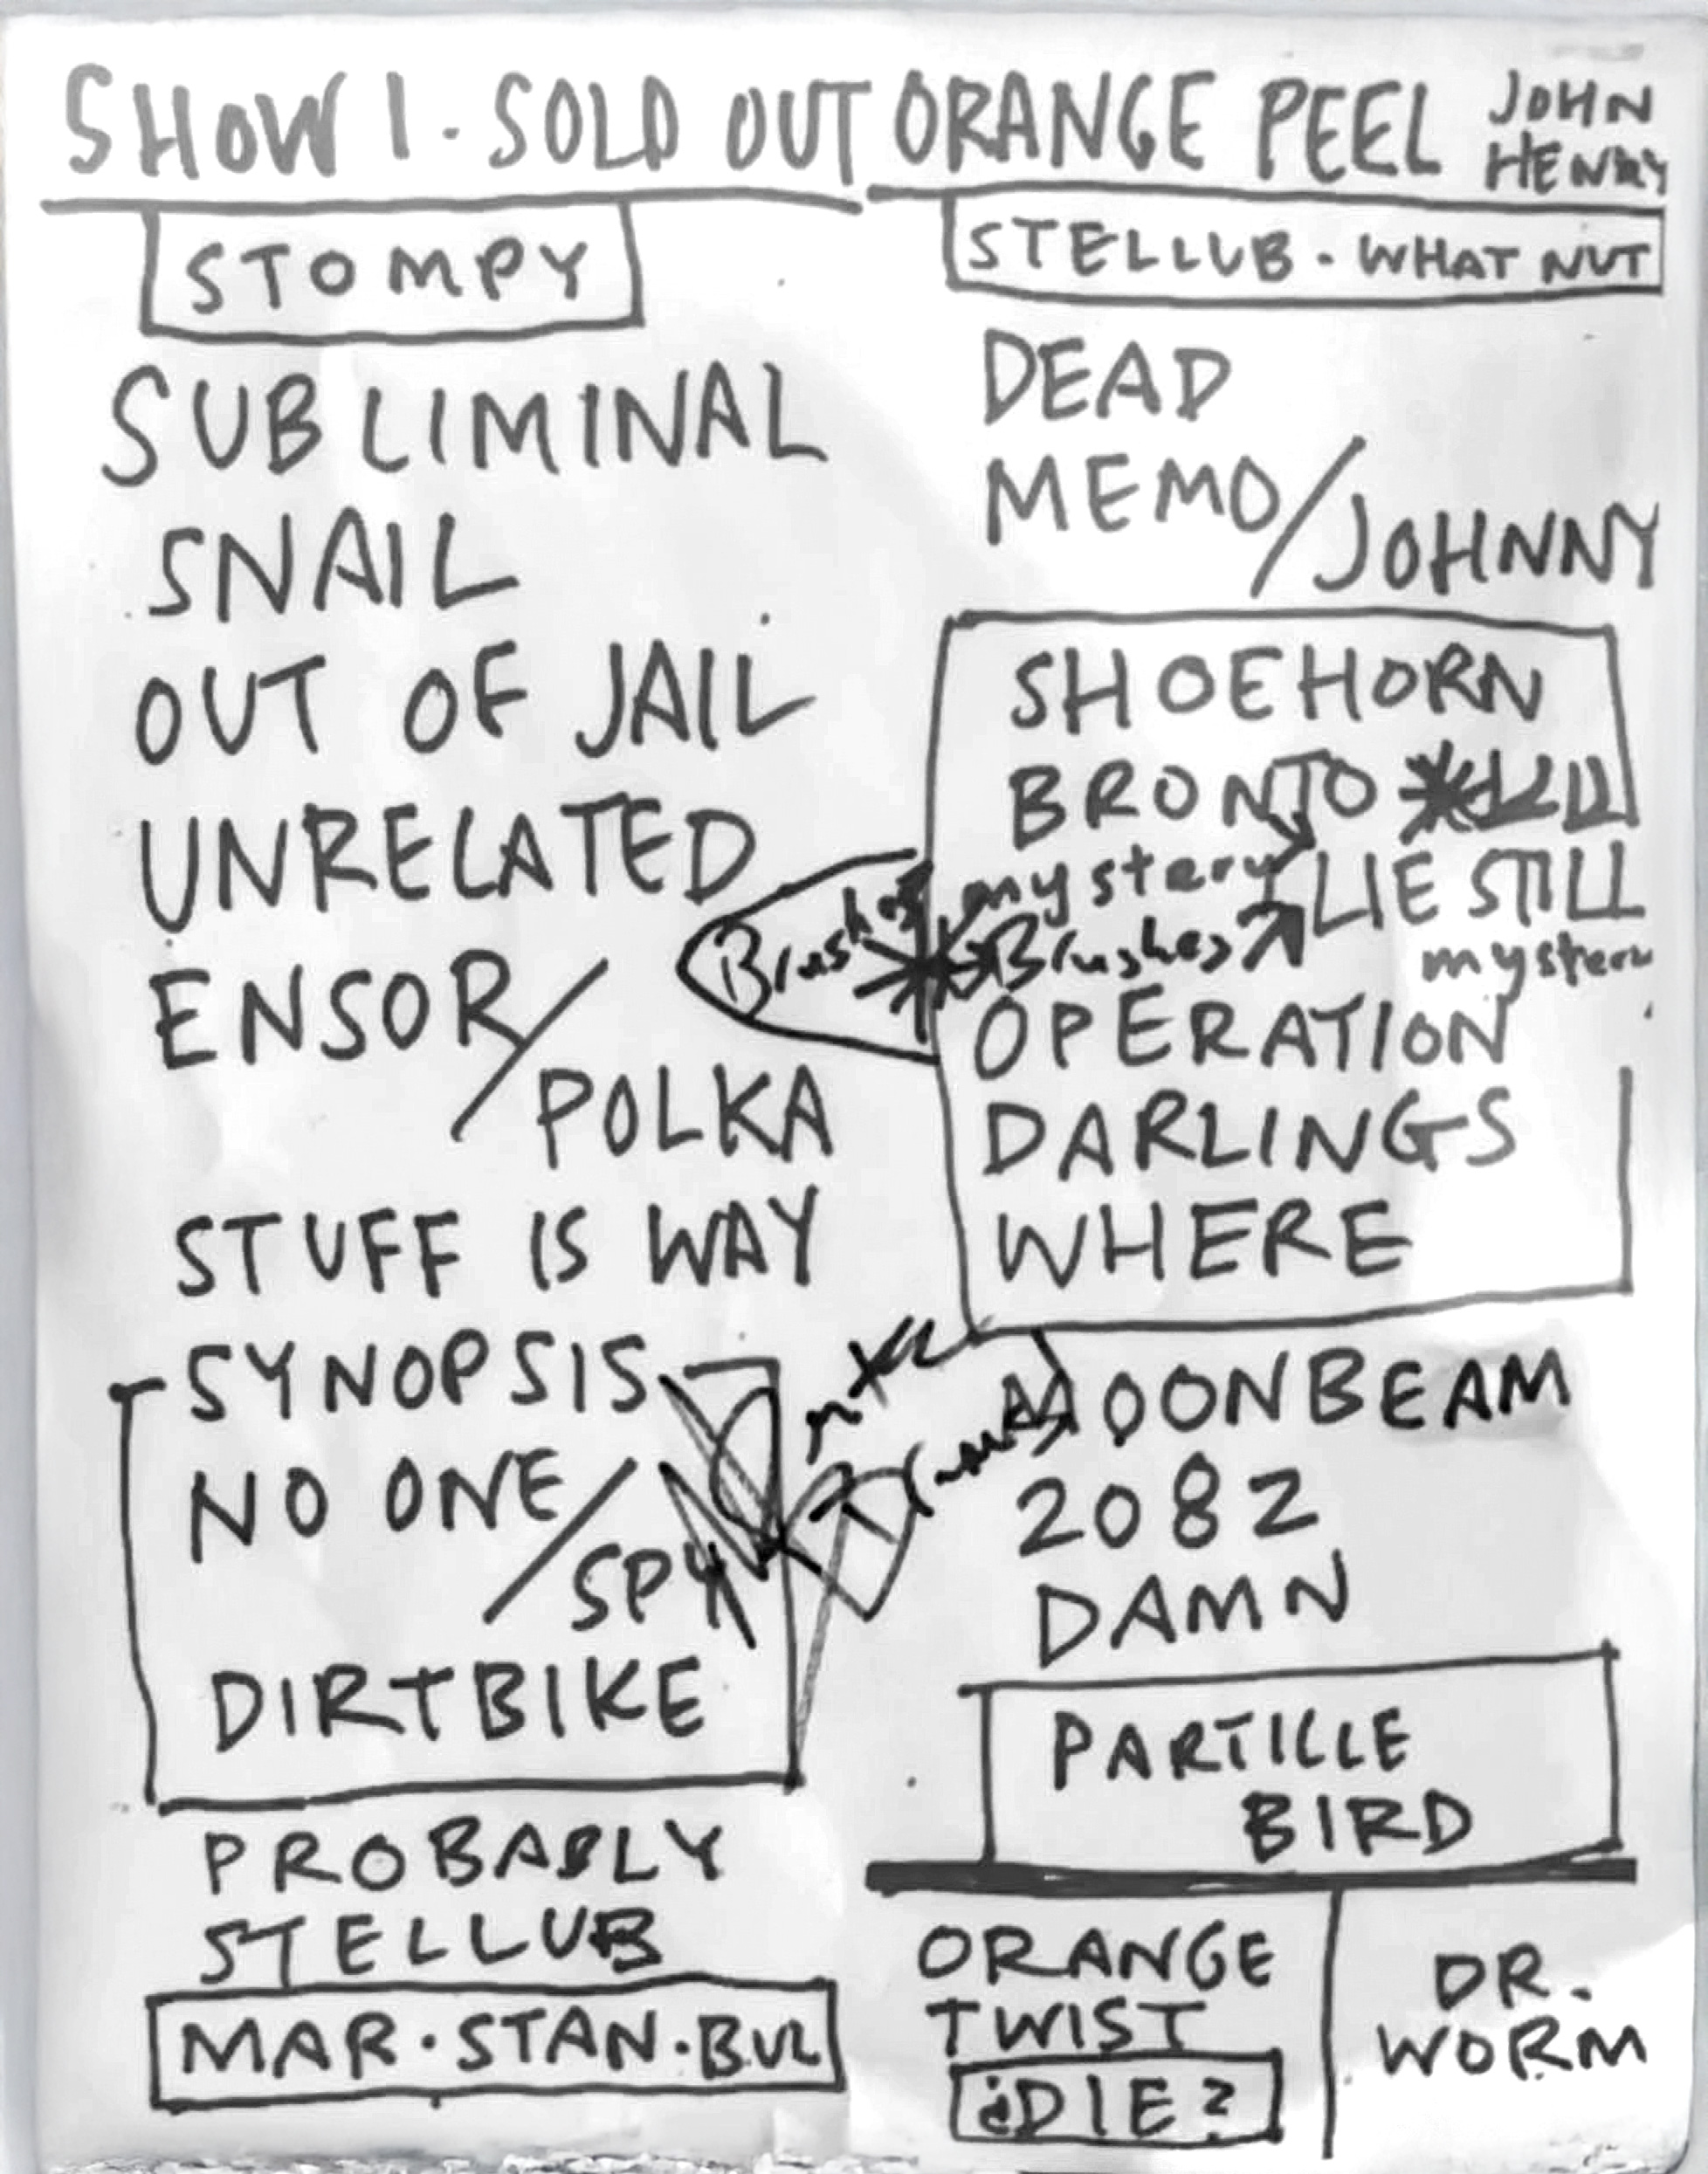 SHOW 1 · SOLD OUT ORANGE PEEL JOHN
HENRY
STOMPY
SUBLIMINAL
SNAIL
OUT OF JAIL
UNRELATED
ENSOR/
POLKA
STUFF IS WAY
SYNOPSIS
NO ONE/
SPY
DIRTBIKE
PROBABLY
STELLUB
MAR · STAN · BUL
STELLUB · WHAT NUT
DEAD
MEMO/JOHNNY
SHOEHORN
BRONTO
mystery LIE STILL
Brushes Brushes mystery
OPERATION
DARLINGS
WHERE
MOONBEAM
2082
DAMN
PARTICLE
BIRD
ORANGE
TWIST
¿DIE?
DR.
WORM